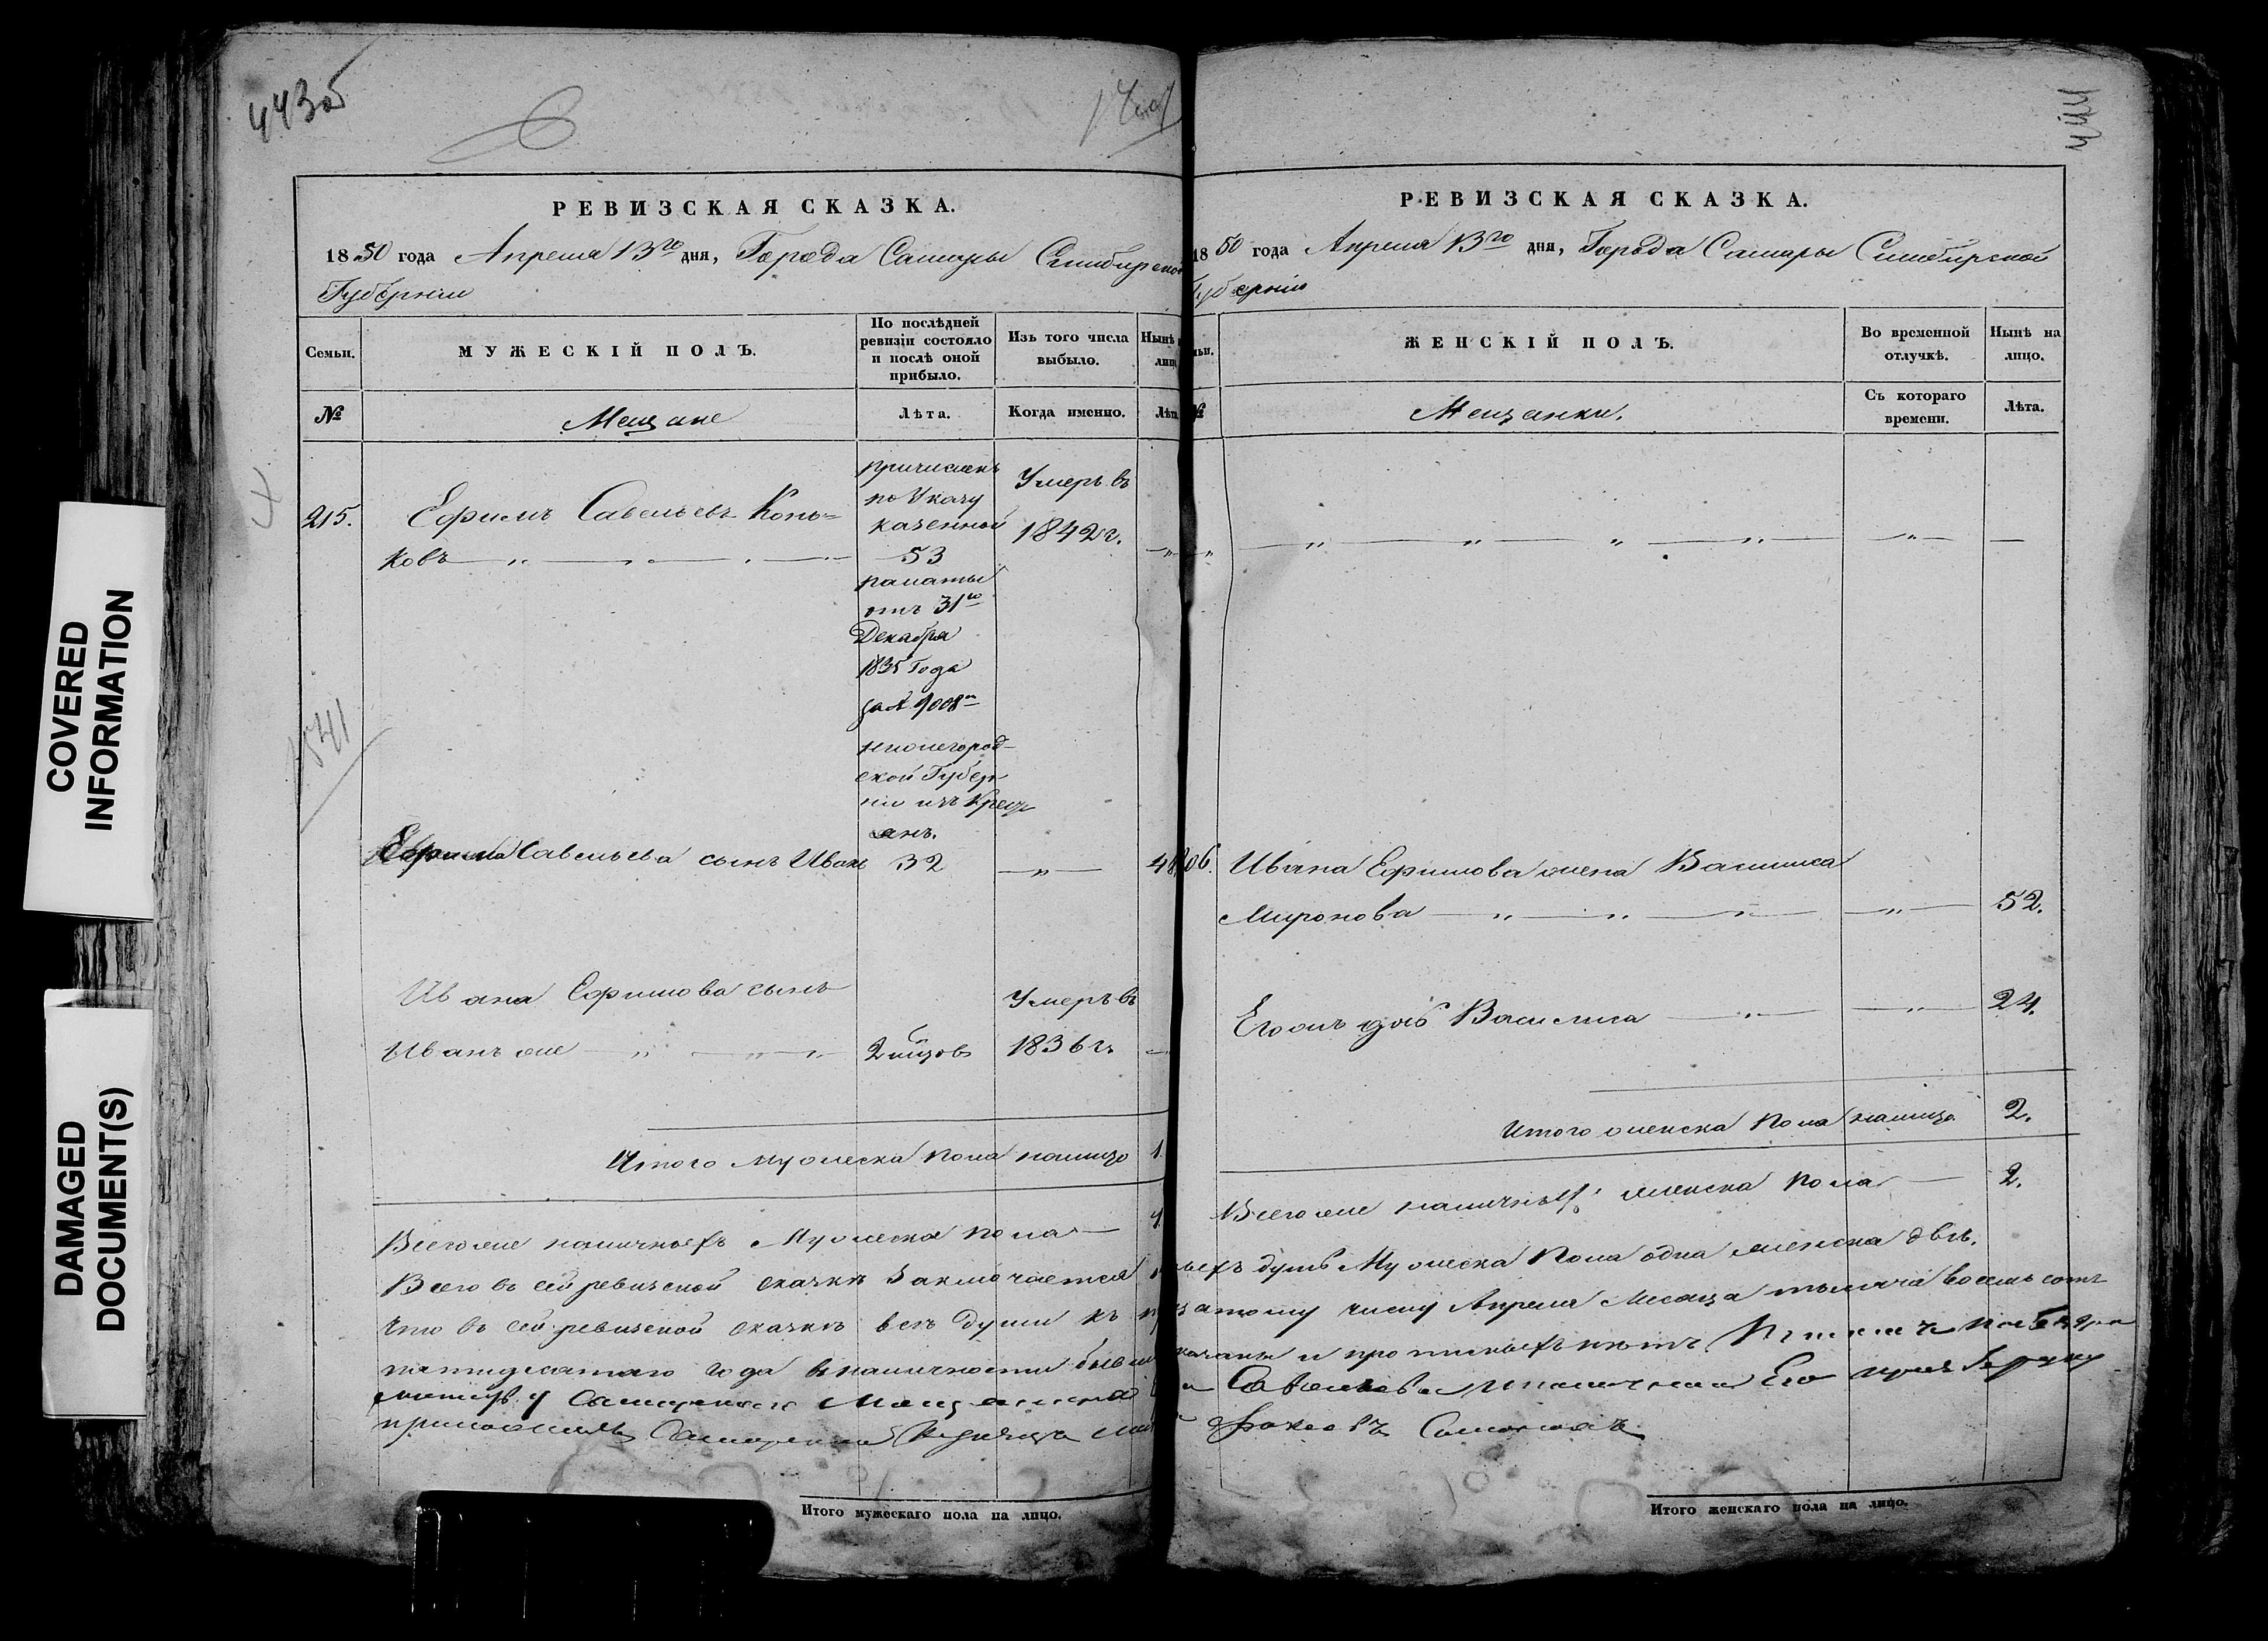 443об
РЕВИЗСКАЯ СКАЗКА.
1850 года Апреля 13го дня, Города Самары Симбирской
Губерніи
Семьи.
МУЖЕСКІЙ ПОЛЪ.
По послѣдней ревизіи состояло и послѣ оной прибыло.
Изъ того числа выбыло.
Нынѣ
№
Мещане
Лѣта.
Когда именно.
Лѣта
215.
Ефимъ Савельевъ Конь=
ковъ
причисленъ
по Указу
казенной
53
палаты
отъ 31го
Декабря
1835 Года
за № 9008м
нижегород-
ской Губер
ніи изъ Крещ
анъ.
Умеръ въ
1842 г.
1541
Ефима Савельева сынъ Иванъ
32
Ивана Ефимова сынъ
Иванъ же
2 мцов
Умеръ въ
1836 г.
Итого мужеска пола налицо 1.
Всего же наличныхъ Мужеска пола 1.
Всего въ сей ревизской сказкѣ заключается
Что въ сей ревизской сказкѣ всѣ души къ
пятидесятаго года въ наличности
Итого мужескаго пола на лицо.
РЕВИЗСКАЯ СКАЗКА.
1850 года Апреля 13го дня, Города Самары Симбирской
Губерніи
ЖЕНСКІЙ ПОЛЪ.
Во временной отлучкѣ.
Нынѣ на лицо.
№
Мещанки.
Съ котораго времени.
Лѣта.
Ивана Ефимова жена Василиса
Миронова
52.
Его дочь Василиса
24.
Итого женска пола налицо 2.
Всего же наличныхъ женска пола 2.
душъ Мужеска пола одна женска двѣ.
числу Апреля Месяца тысяча восемь сотъ
и прописныхъ нѣтъ
Савельева Его
Итого женскаго пола на лицо.
COVERED
INFORMATION
DAMAGED
DOCUMENT(S)